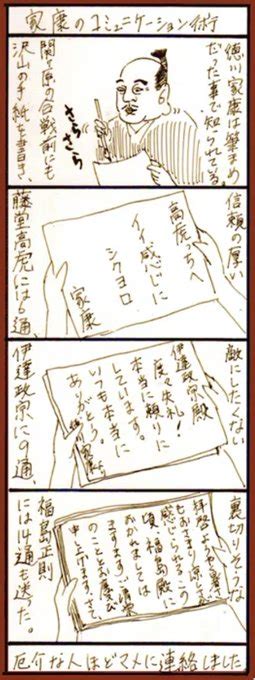 家康のコミュニケーション術
徳川家康は筆まめ
だった事で知られてる。
さらさら
関ヶ原の合戦前にも
沢山の手紙を書き、
信頼の厚い
高虎っちへ
イイ感じに
シクヨロ
家康
藤堂高虎には6通、
敵にしたくない
伊達政宗殿
度々失礼!
本当に頼りに
しています。
いつも本当に
ありがとう。
家康
伊達政宗に9通、
裏切りそうな
拝啓 ようやく暑さ
感じられるこの
頃、福島殿に
おかれましては
ますますご清栄
のこととお慶び
申し上げます。さて、
福島正則
には14通も送った。
厄介な人ほどマメに連絡しました